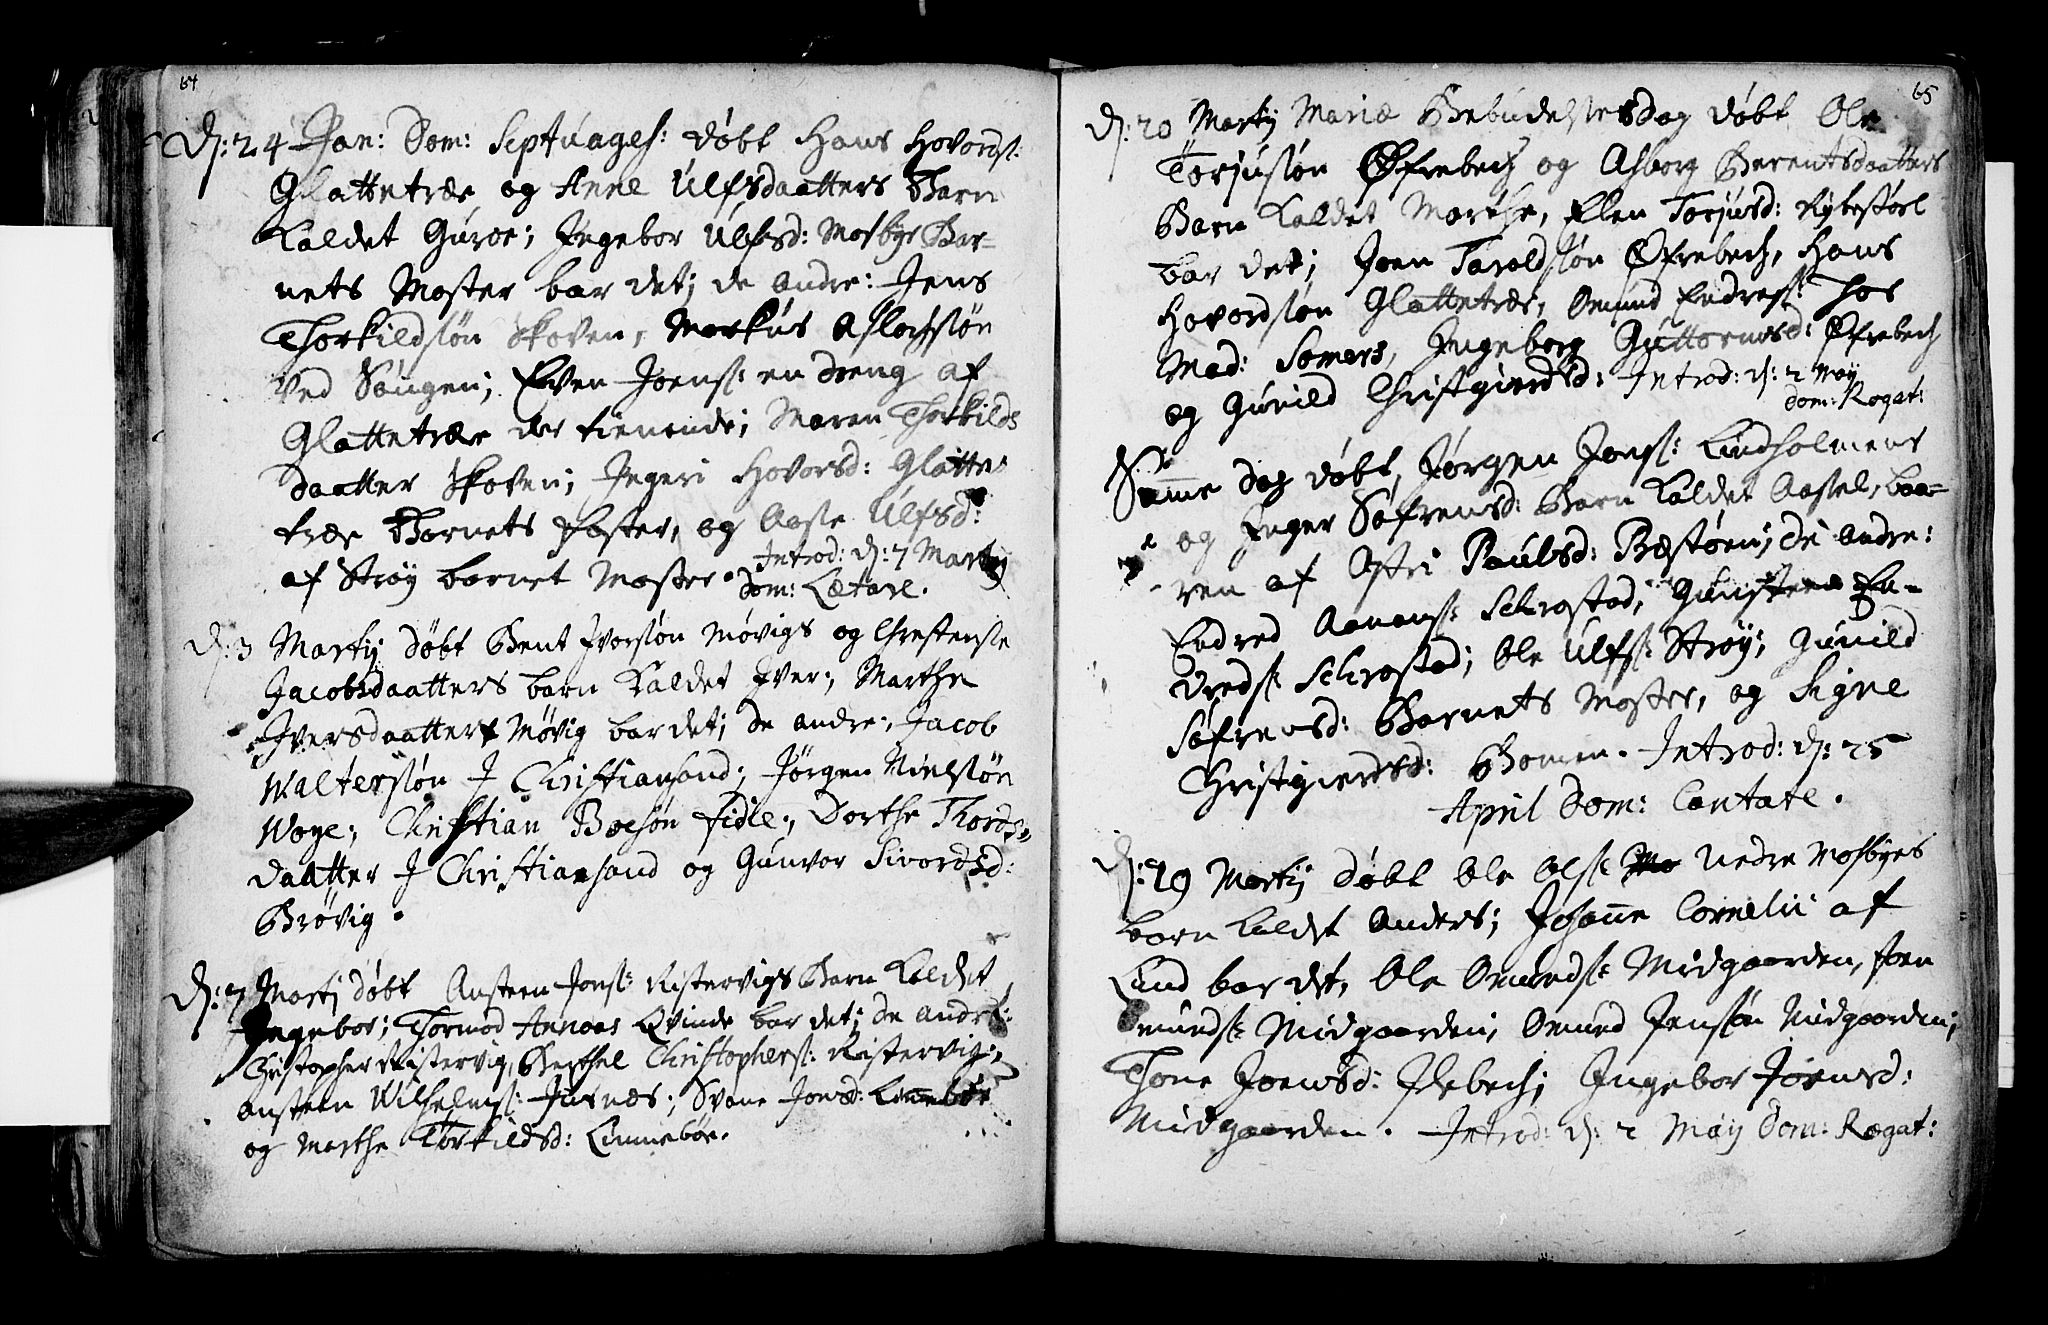 64
D: 24 Jan: Dom: Septuages: døbt Hans Hovords:
Glattetræe og Anne Ulfsdaatters Barn
kaldet Guroe; Ingebor Ulfsd: Mosbye Bar-
nets Moster bar det; de andre: Jens
Thorkildsøn Skoven, Markus Aslachsøn
ved Søngen; Even Joens: en dreng af
Glattetræe der tienende; Maren Thorkilds
daatter Skoven; Ingeri Hovorsd: Glatte-
træe Barnets Faster, og Aase Ulfsd:
af Strøy barnet Moster. Introd: d: 7 Martij
Dom: Lætare.
D: 3 Martij døbt Bent Iversøn Møvigs og Christense
Jacobsdaatters barn kaldet Iver; Marthe
Iversdaatter Møvig bar det; de andre; Jacob
Waltersøn I Christiansand; Jørgen Nielsøn
Woge; Christian Boesøn Fidie; Dorthe Thords-
daatter I Christiansand og Gunvor Sivordsd:
Brøvig.
D: 7 Martj døbt Ansteen Jons: Ristervigs Barn kaldet
Ingebor; Tormod Annoas Qvinde bar det; de andre:
Christopher Ristervig, Berthel Christophers: Ristervig;
Ansteen Wilhelms: Jusnæs; Svane Jonsd: Linnebøe
og Marthe Torkildsd: Linnebøe.
65
D: 20 Martij Mariæ Bebudelsesdag døbt Ole
Torjusøn Øfrebech og Asborg Berentsdaatters
Barn kaldet Marthe, Ellen Torjusd: Rybestøel
bar det; Joen Taraldsøn Øfrebech, Hans
Hovordsøn Glattetræe, Omund Endres: hos
Mad: Somers, Ingeborg Guttormsd: Øfrebech
og Gunild Christgierdsd: Introd: d: 2 Maij
Dom: Rogat:
Samme dag døbt, Jørgen Jons: Lindholmens
og Inger Søfrensd: Barn kaldet Aasel, baa-
ren af Astri Paulsd: Bæstøen; de andre:
Endred Aanons: Schrostad; Gunsteen En-
dreds: Schrostad; Ole Ulfs: Strøy; Gunild
Søfrensd: Barnets Moster, og Signe
Christgierdsd: Bomen. Introd: d: 25
April Dom: Cantate.
D: 29 Martij døbt Ole Ols: Nedre Mosbyes
barn kaldet Anders; Johanne Cornelii af
Lund bar det, Ole Omunds: Midgaarden, Joen
Omunds: Midgaarden; Omund Jensøn Midgaarden;
Thore Joensd: Ilebech; Ingebor Joensd:
Midgaarden. Introd: d: 2 Maij Dom: Rogat: